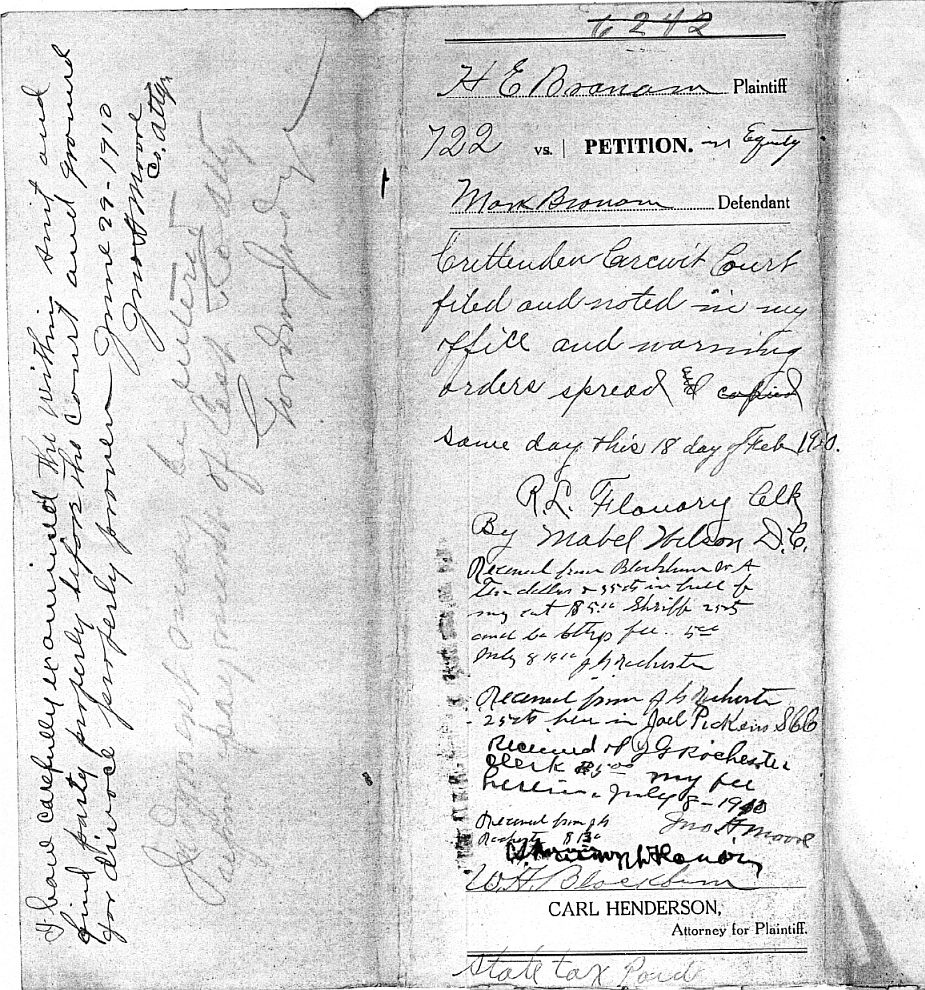 I have carefully examined the within suit and
find party properly before the court and ground
for divorce properly proven June 29-1910
Jno A Moore
Co. Atty.
Judgment may be entered
payment of cost
Gordon Judge
6242
H E Branam Plaintiff
722 vs. PETITION. in Equity
Branam Defendant
Crittenden Circuit Court
filed and noted in my
office and warning
orders spread & copied
same day this 18 day of Feb 1910.
R.L. Flanary Clk
By Mabel Wilson D.C.
Received from Blackburn
Ten dollars & 25cts in full of
my cost Sheriff 25cts
and fee
July 8 1910 J G Rochester
Received from J G Rochester
25cts fee in Joel Pickens SCC
Received of J G Rochester
Clerk my fee
herein. July 8-1910
Jno A Moore
Received from J G
Rochester
Flanary
W.H. Blackburn
CARL HENDERSON,
Attorney for Plaintiff.
State tax Paid